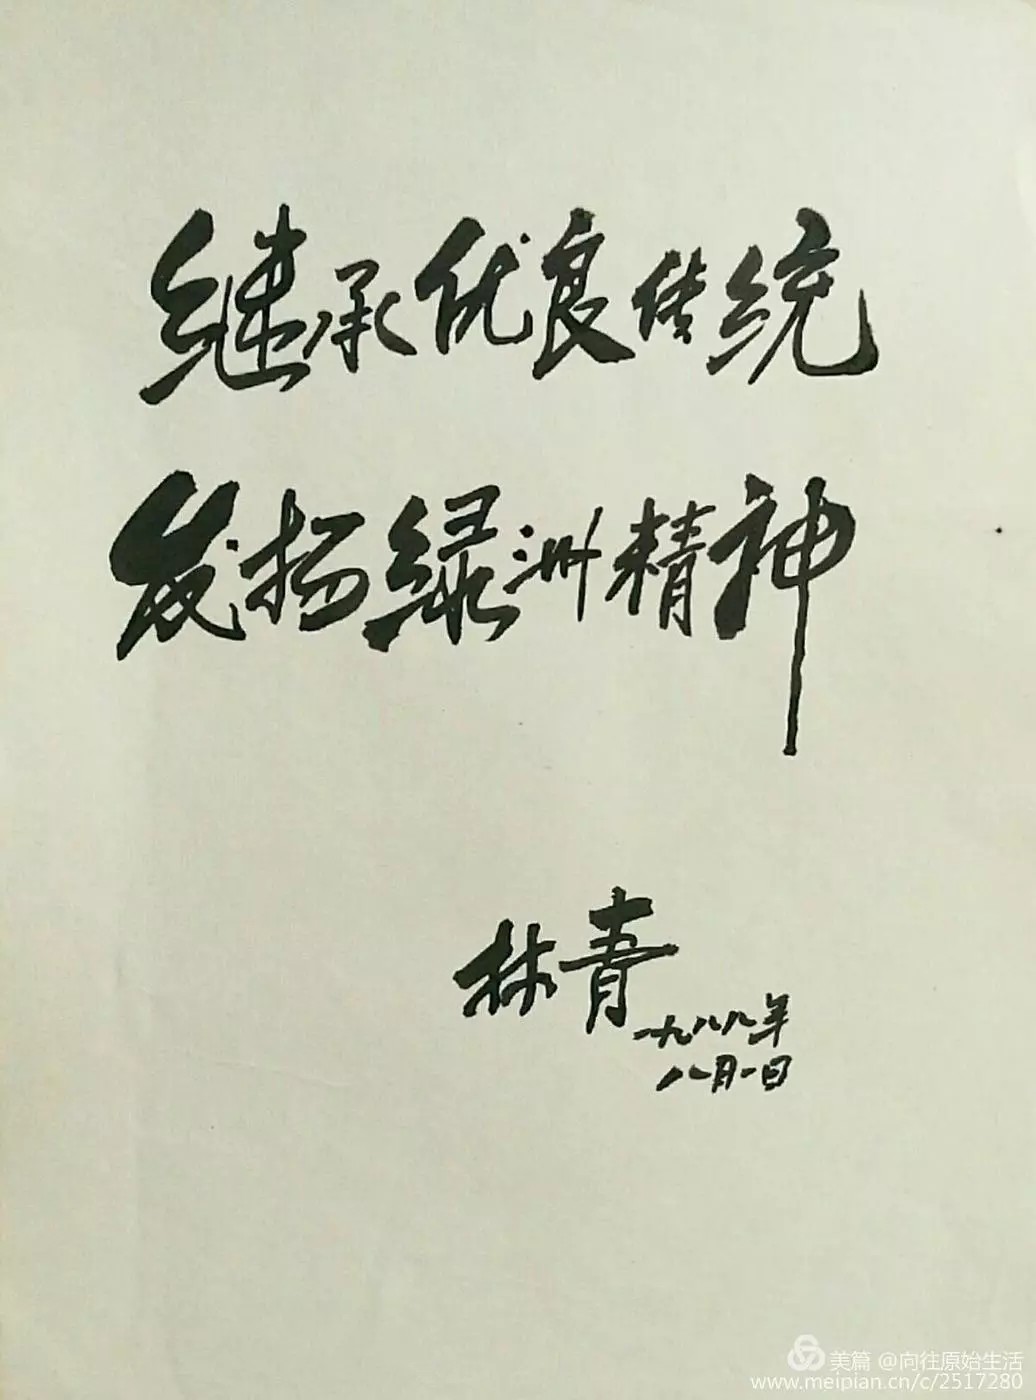 继承优良传统
发扬绿洲精神
林青
一九八八年
八月一日
美篇 @向往原始生活
www.meipian.cn/c/2517280